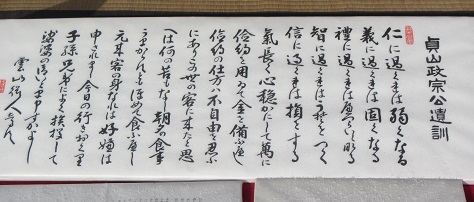 貞山政宗公遺訓
仁に過ぐれば弱くなる
義に過ぐれば固くなる
禮に過ぐれば
智に過ぐればうそをつく
信に過ぐれば損をする
氣長く心穏かにして萬に
儉約を用ゐて金を備ふべし
儉約の仕方は不自由を忍ぶ
にありこの世の客に来たと思
へば何の苦もなし朝夕の食事
うまからずともほめて食ふべし
元来客の身なれば好嫌は
申されまい今日の行きおくり
子孫兄弟によく挨拶して
娑婆の御いとま申すがよし